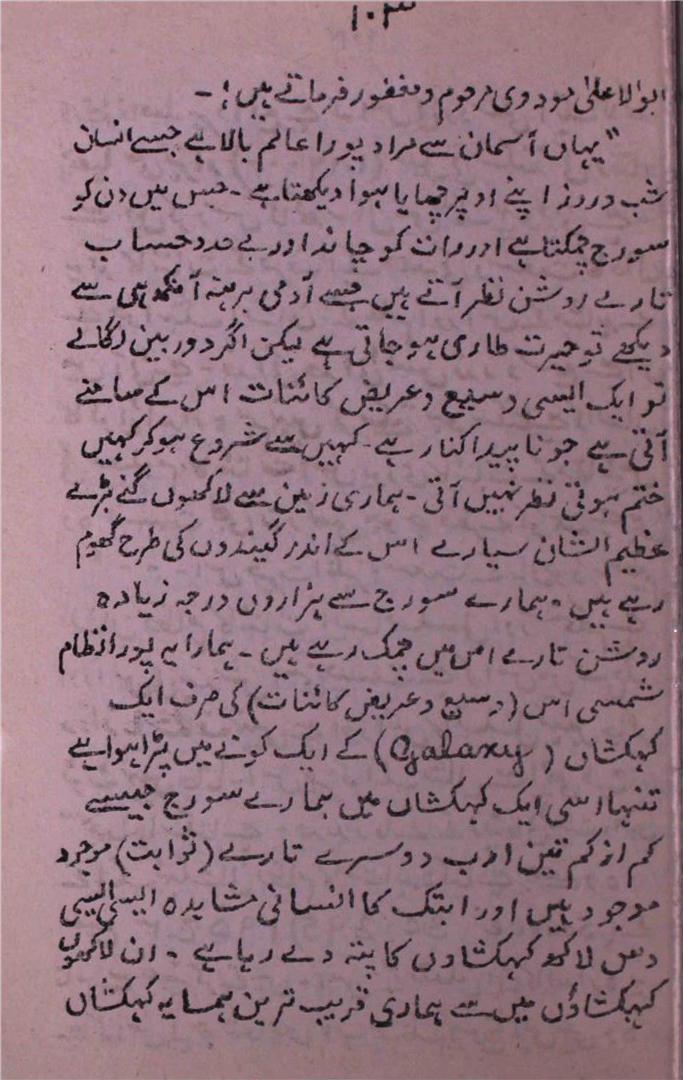 ۱۰۳
ابوالاعلیٰ مودودی مرحوم و مغفور فرماتے ہیں؛ -
"یہاں آسمان سے مراد پورا عالم بالا ہے جسے انسان
شب و روز اپنے اوپر چھایا ہوا دیکھتا ہے - جس میں دن کو
سورج چمکتا ہے اور رات کو چاند اور بے حد و حساب
تارے روشن نظر آتے ہیں جسے آدمی برہنہ آنکھ ہی سے
دیکھے تو حیرت طاری ہو جاتی ہے لیکن اگر دوربین لگالے
تو ایک ایسی وسیع و عریض کائنات اس کے سامنے
آتی ہے جو ناپیدا کنار ہے - کہیں سے شروع ہو کر کہیں
ختم ہوتی نظر نہیں آتی - ہماری زمین سے لاکھوں گنے بڑے
عظیم الشان سیارے اس کے اندر گیندوں کی طرح گھوم
رہے ہیں - ہمارے سورج سے ہزاروں درجہ زیادہ
روشن تارے اس میں چمک رہے ہیں - ہمارا یہ پورا نظام
شمسی اس (وسیع و عریض کائنات) کی صرف ایک
کہکشاں (Galaxy) کے ایک کونے میں پڑا ہوا ہے
تنہا اسی ایک کہکشاں میں ہمارے سورج جیسے
کم از کم تین ارب دوسرے تارے (ثوابت) موجود
موجود ہیں اور ابتک کا انسانی مشاہدہ ایسی ایسی
دس لاکھ کہکشاوں کا پتہ دے رہا ہے - ان لاکھوں
کہکشاؤں میں سے ہماری قریب ترین ہمسایہ کہکشاں